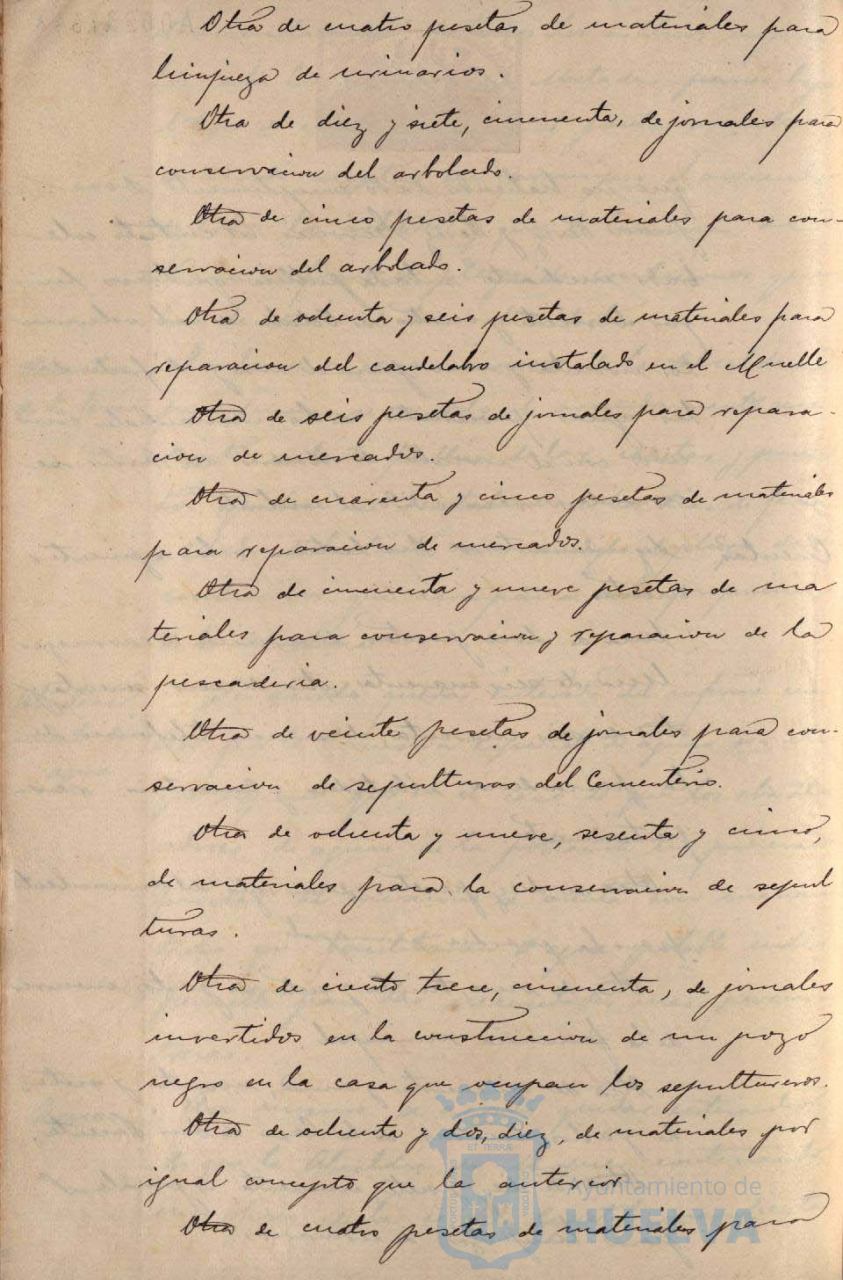 Otra de cuatro pesetas de materiales para
limpieza de urinarios.
Otra de diez y siete, cincuenta, de jornales para
conservacion del arbolado.
Otra de cinco pesetas de materiales para con-
servacion del arbolado.
Otra de ochenta y seis pesetas de materiales para
reparacion del candelabro instalado en el Muelle
Otra de seis pesetas de jornales para repara-
cion de mercados.
Otra de cuarenta y cinco pesetas de materiales
para reparacion de mercados.
Otra de cincuenta y nueve pesetas de ma
teriales para conservacion y reparacion de la
pescaderia.
Otra de veinte pesetas de jornales para con-
servacion de sepulturas del Cementerio.
Otra de ochenta y nueve, sesenta y cinco,
de materiales para la conservacion de sepul
turas.
Otra de ciento trece, cincuenta, de jornales
invertidos en la construccion de un pozo
negro en la casa que ocupan los sepultureros.
Otra de ochenta y dos, diez, de materiales por
igual concepto que la anterior
Otra de cuatro pesetas de materiales para
Ayuntamiento de
HUELVA